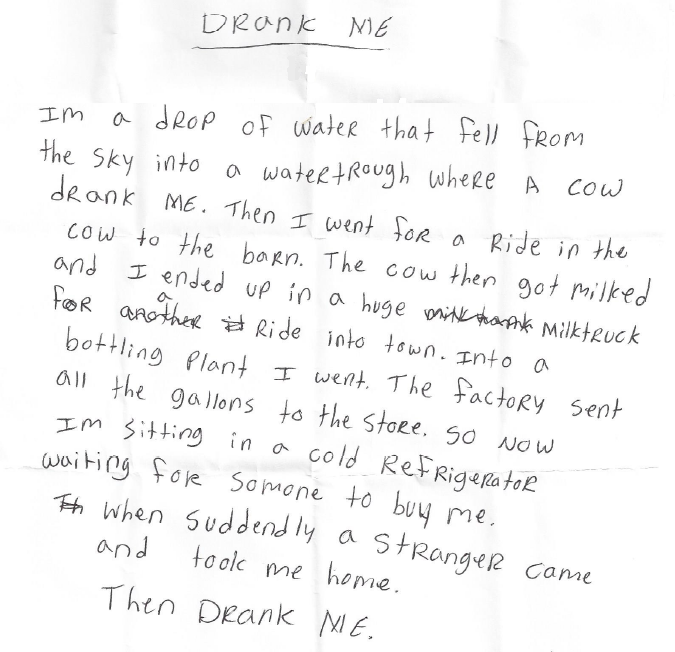 DRank ME
Im a dROP OF wateR that fell fROM
the Sky into a wateRtRough wheRe A cow
dRank ME. Then I went foR a Ride in the
cow to the baRn. The cow then got milked
and I ended up in a huge milk tank MilktRuck
foR a another it Ride into town. Into a
bottling Plant I went. The factoRy sent
all the gallons to the StoRe. SO NOW
Im Sitting in a cold RefRigeRatoR
waiting foR Somone to buy me.
It when Suddendly a StRangeR came
and took me home.
Then DRank ME.